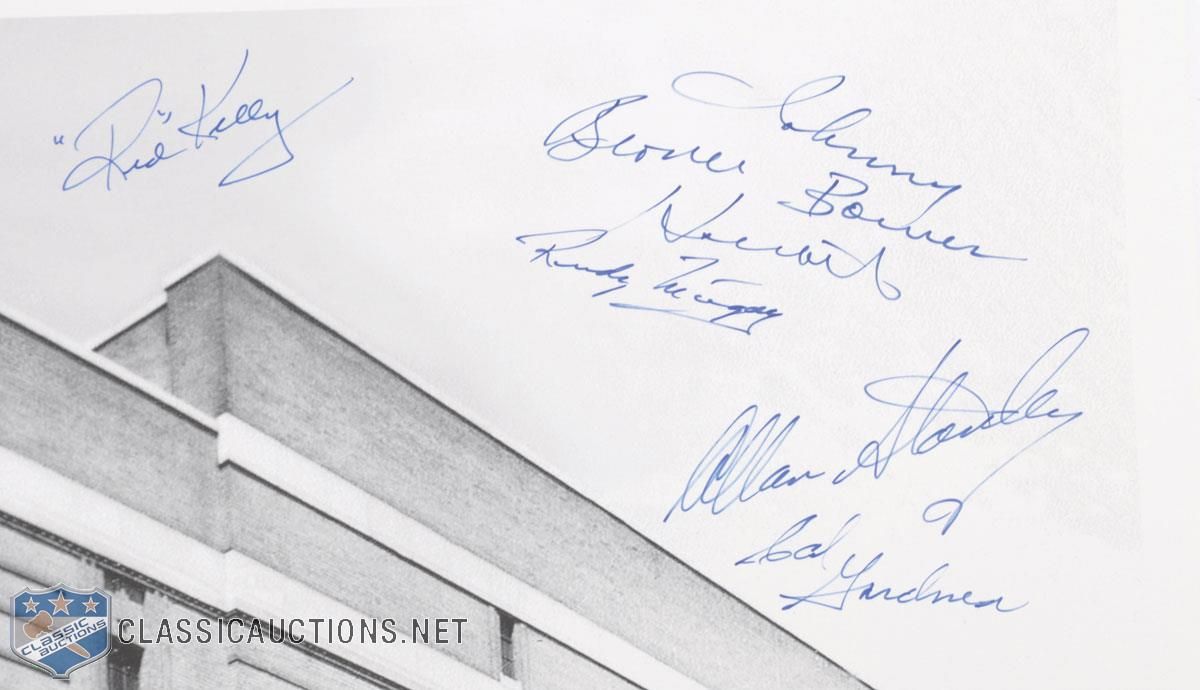 "Red" Kelly
Johnny
Bower
Howie
Randy
Allan Stanley
Cal
Gardner
CLASSIC
AUCTIONS
CLASSICAUCTIONS.NET